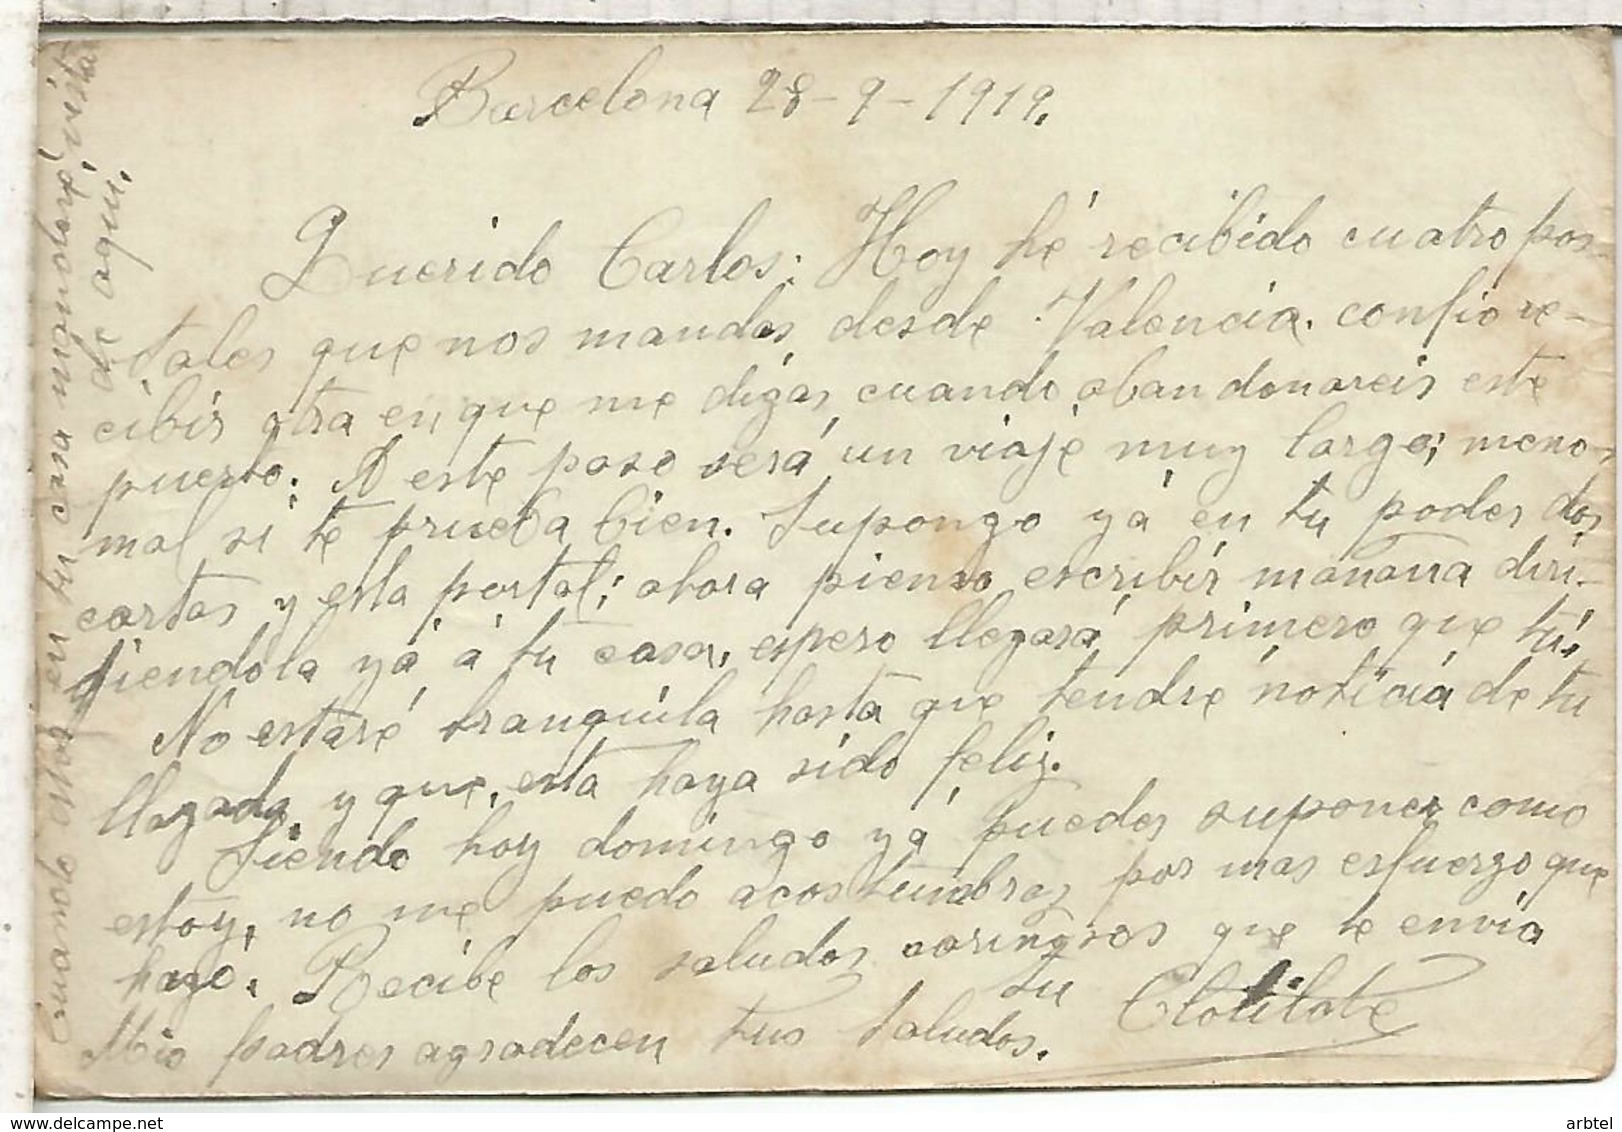 Barcelona 28-9-1919.
Querido Carlos: Hoy hé recibido cuatro pos-
tales que nos mandas desde Valencia. confio re-
cibir otra en que me digas cuando abandonareis este
puerto. A este paso será un viaje muy largo; meno
mal si te prueba bien. Supongo yá en tu poder dos
cartas y esta postal; ahora pienso escribir mañana diri-
jiendola yá á tu casa, espero llegará primero que tú,
No estaré tranquila hasta que tendré noticia de tu
llegada, y que, esta haya sido feliz.
Siendo hoy domingo yá puedes suponer como
estoy, no me puedo acostumbrar por mas esfuerzo que
hago. Recibe los saludos cariñosos que te envia
tu Clotilde
Mis padres agradecen tus saludos.
Cuando estas en tu casa mandaré, vista
de aqui.
delcampe.net
arbtel